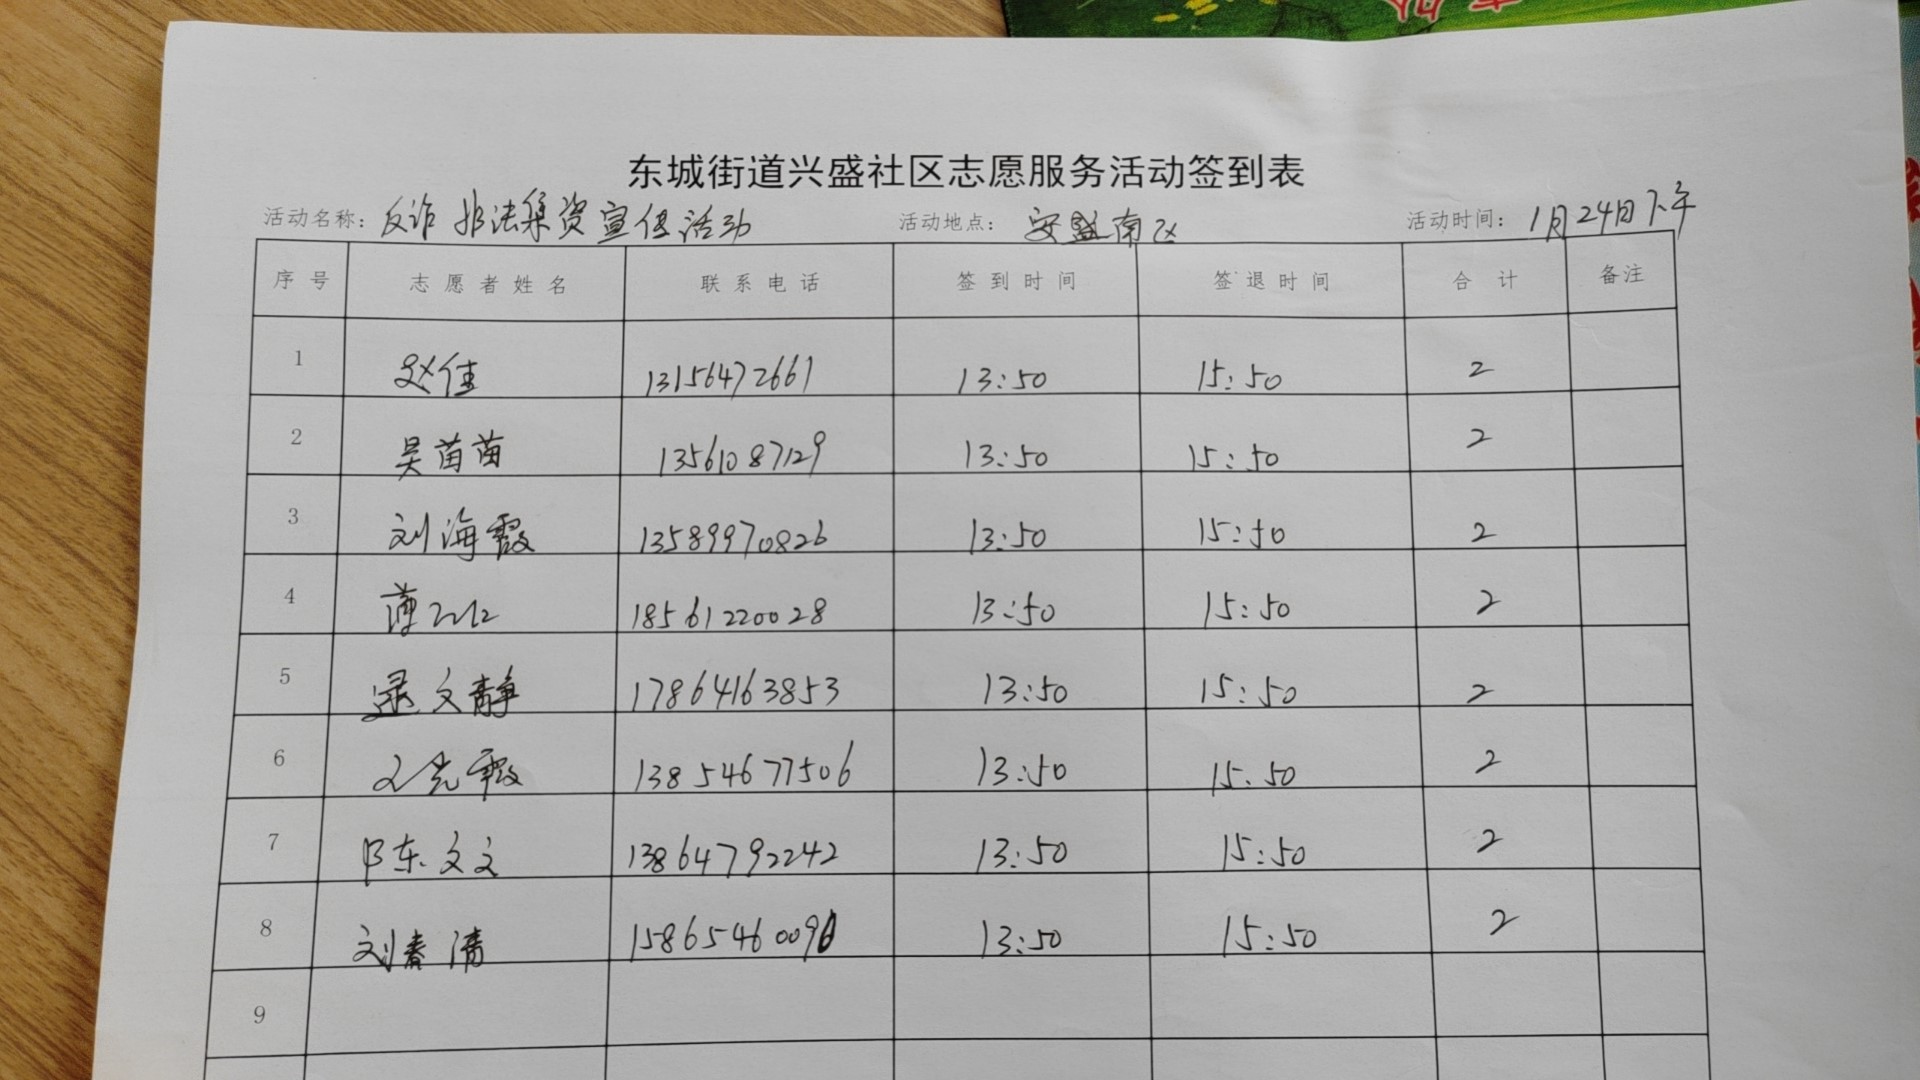 东城街道兴盛社区志愿服务活动签到表
活动名称：反诈 非法集资宣传活动 活动地点：安盛南区 活动时间：1月24日下午
序号 志愿者姓名 联系电话 签到时间 签退时间 合计 备注
1 赵佳 13156472661 13:50 15:50 2
2 吴苗苗 13561087129 13:50 15:50 2
3 刘海霞 13589970826 13:50 15:50 2
4 薄 18561220028 13:50 15:50 2
5 逯文静 17864163853 13:50 15:50 2
6 13854677506 13:50 15:50 2
7 陈文文 13864792242 13:50 15:50 2
8 刘春清 15865460096 13:50 15:50 2
9